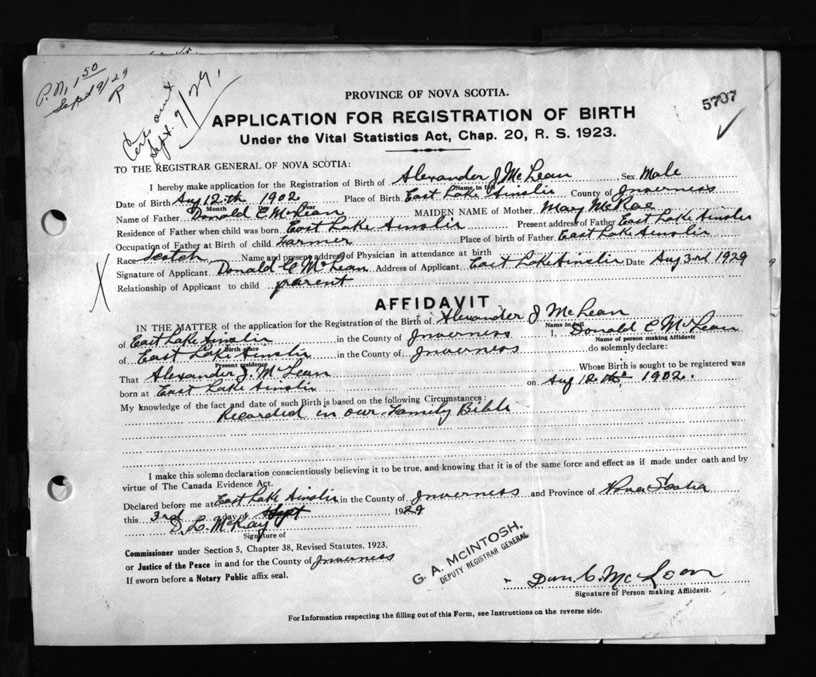 P.N. 1 50
Sept 9/29
R
Cert and
Sept. 9/29.
5707
PROVINCE OF NOVA SCOTIA.
APPLICATION FOR REGISTRATION OF BIRTH
Under the Vital Statistics Act, Chap. 20, R. S. 1923.
TO THE REGISTRAR GENERAL OF NOVA SCOTIA:
I hereby make application for the Registration of Birth of Alexander J McLean Sex Male
Name in full
Date of Birth Aug 12th 1902 Place of Birth East Lake Ainslie County of Inverness
Month Year
Name of Father Donald C McLean MAIDEN NAME of Mother Mary McRae
Residence of Father when child was born East Lake Ainslie Present address of Father East Lake Ainslie
Occupation of Father at Birth of child Farmer Place of birth of Father East Lake Ainslie
Race Scotch Name and present address of Physician in attendance at birth
Signature of Applicant Donald C McLean Address of Applicant East Lake Ainslie Date Aug 3rd 1929
Relationship of Applicant to child parent
AFFIDAVIT
IN THE MATTER of the application for the Registration of the Birth of Alexander J McLean
Name in full
of East Lake Ainslie in the County of Inverness I, Donald C McLean
Birth Name of person making Affidavit
of East Lake Ainslie in the County of Inverness do solemnly declare:
Present residence
That Alexander J. McLean Whose Birth is sought to be registered was
born at East Lake Ainslie on Aug 12th 1902.
My knowledge of the fact and date of such Birth is based on the following Circumstances:
Recorded in our Family Bible
I make this solemn declaration conscientiously believing it to be true, and knowing that it is of the same force and effect as if made under oath and by
virtue of The Canada Evidence Act.
Declared before me at East Lake Ainslie in the County of Inverness and Province of Nova Scotia
this 3rd day of Sept 1929
D. L. McKay
Signature of
Commissioner under Section 5, Chapter 38, Revised Statutes, 1923,
or Justice of the Peace in and for the County of Inverness
If sworn before a Notary Public affix seal.
G. A. McINTOSH,
DEPUTY REGISTRAR GENERAL
Dan C. McLean
Signature of Person making Affidavit.
For Information respecting the filling out of this Form, see Instructions on the reverse side.